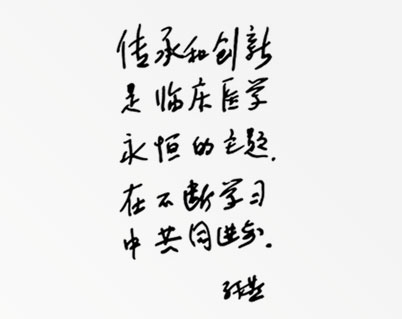 传承和创新
是临床医学
永恒的主题.
在不断学习
中共同进步.